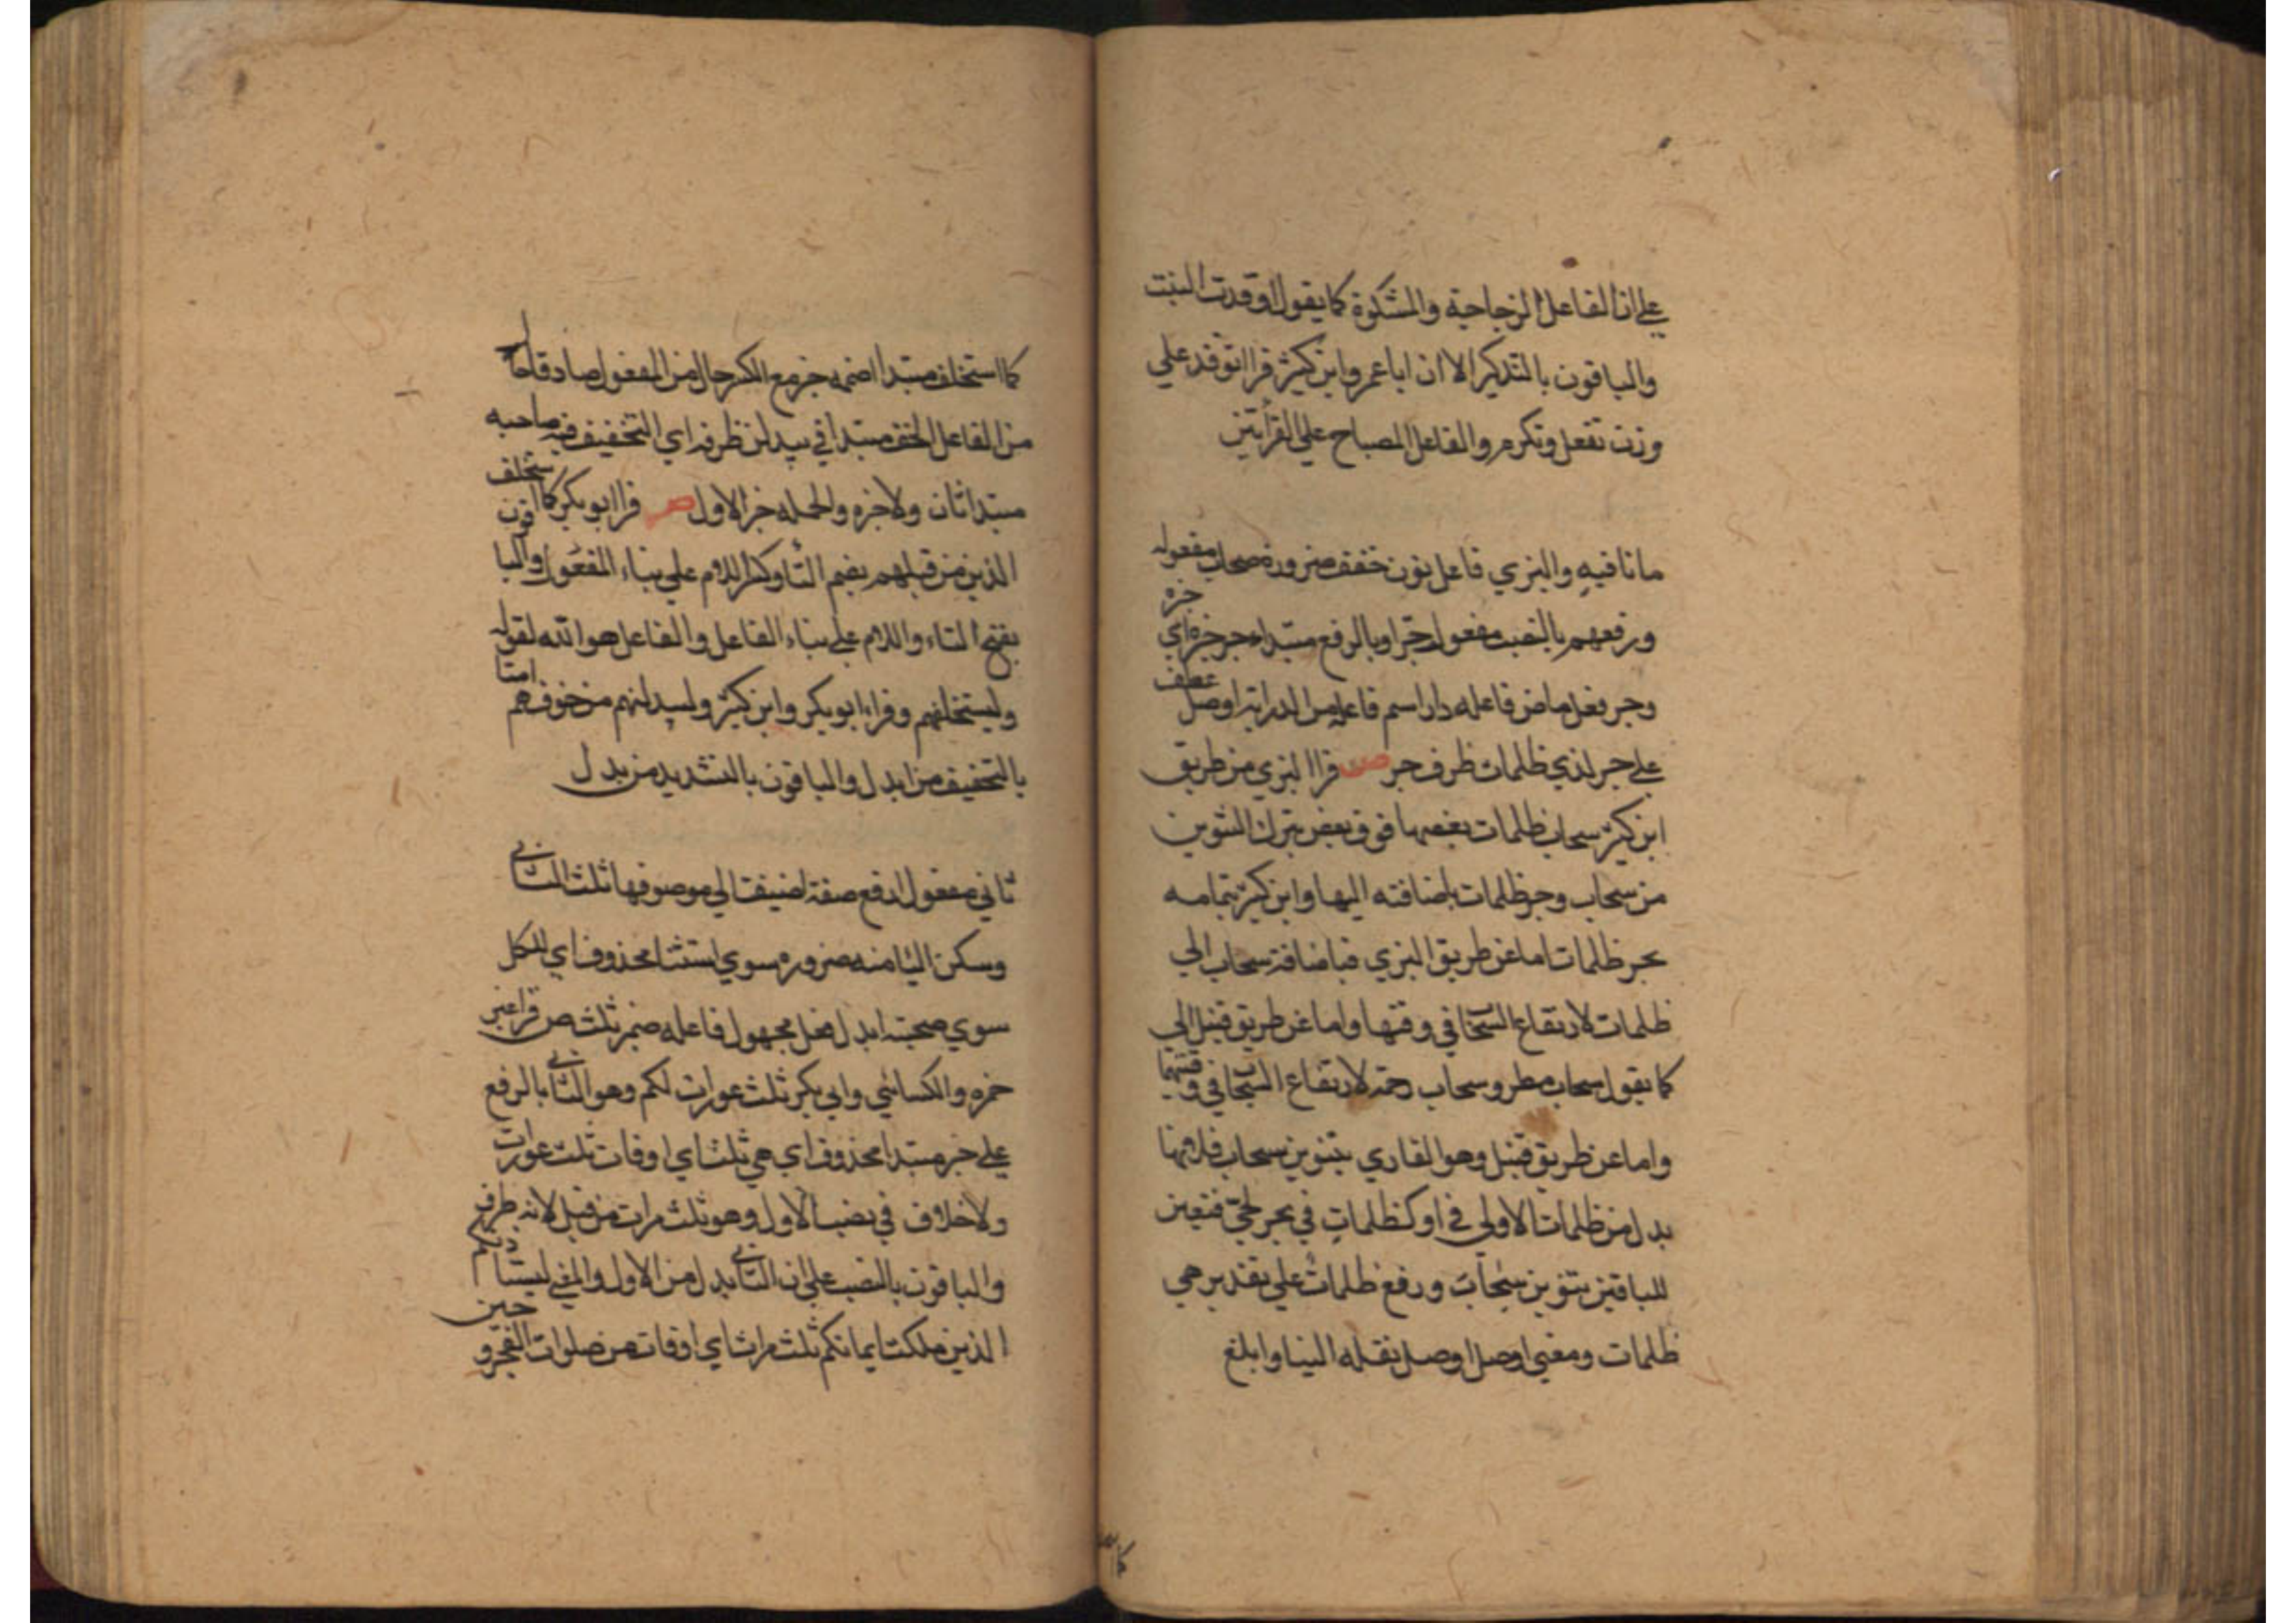 علي ان الفاعل الزجاجة والمشكوة كما يقول اوقدت البيت
والباقون بالتذكير الا ان ابا عمرو وابن كثير قرا توقد علي
وزن تفعل وتكرم والفاعل المصباح علي القرأتين
ما نافيه والبزي فاعل نون خفف ضرورة سحاب مفعوله
ورفعهم بالنصب مفعول جر او بالرفع مبتدا جر خبره اي جره
وجر فعل ماض فاعله دار اسم فاعل من الدراية اوصل عطف
علي جر لذي ظلمات ظرف جر ص قرا البزي من طريق
ابن كثير سحاب ظلمات بعضها فوق بعض بترك التنوين
من سحاب وجر ظلمات باضافته اليها وابن كثير بتمامه
بجر ظلمات اما عن طريق البزي فباضافة سحاب الي
ظلمات لارتفاع السحاب في وقتها واما عن طريق قنبل الي
كما يقول سحاب مطر وسحاب رحمة لارتفاع السحاب في وقتهما
واما عن طريق قنبل وهو القاري بتنوين سحاب فلانها
بدل من ظلمات الاولي في او كظلمات في بحر لجي فتعين
للباقين بتنوين سحاب ورفع ظلمات علي تقدير هي
ظلمات ومعني اوصل اوصل نقله الينا وابلغ
كما استخلف مبتدا اضممه خبر مع الكسر حال من المفعول صادقا حا
من الفاعل الخف مبتدا في يبدلن ظرفه اي التخفيف فيه صاحبه
مبتدا ثان ولا خبره والجمله خبر الاول ص قرا ابو بكر كما استخلف
الذين من قبلهم بضم التا وكسر اللام علي بناء المفعول والباقون
بفتح التاء واللام علي بناء الفاعل والفاعل هو الله لقوله
وليستخلفنهم وقراء ابو بكر وابن كثير وليبدلنهم من خوفهم امنا
بالتخفيف من ابدل والباقون بالتشديد من بدل
ثاني مفعول ارفع صفة اضيفت الي موصوفها ثلث الثاني
وسكن اليا منه ضروره سوي استثنا محذوف اي للكل
سوي صحبته ابدل فعل مجهول فاعله ضمير ثلث ص قرا غير
حمزه والكسائي وابي بكر ثلث عورات لكم وهو الثاني بالرفع
علي خبر مبتدا محذوف اي هي ثلث اي اوقات ثلث عورات
ولا خلاف في نصب الاول وهو ثلث مرات من قبل لانه ظرف
والباقون بالنصب علي ان الثاني بدل من الاول والمعني ليستاذنكم
الذين ملكت ايمانكم ثلث مرات اي اوقات من صلوات الفجر و حين